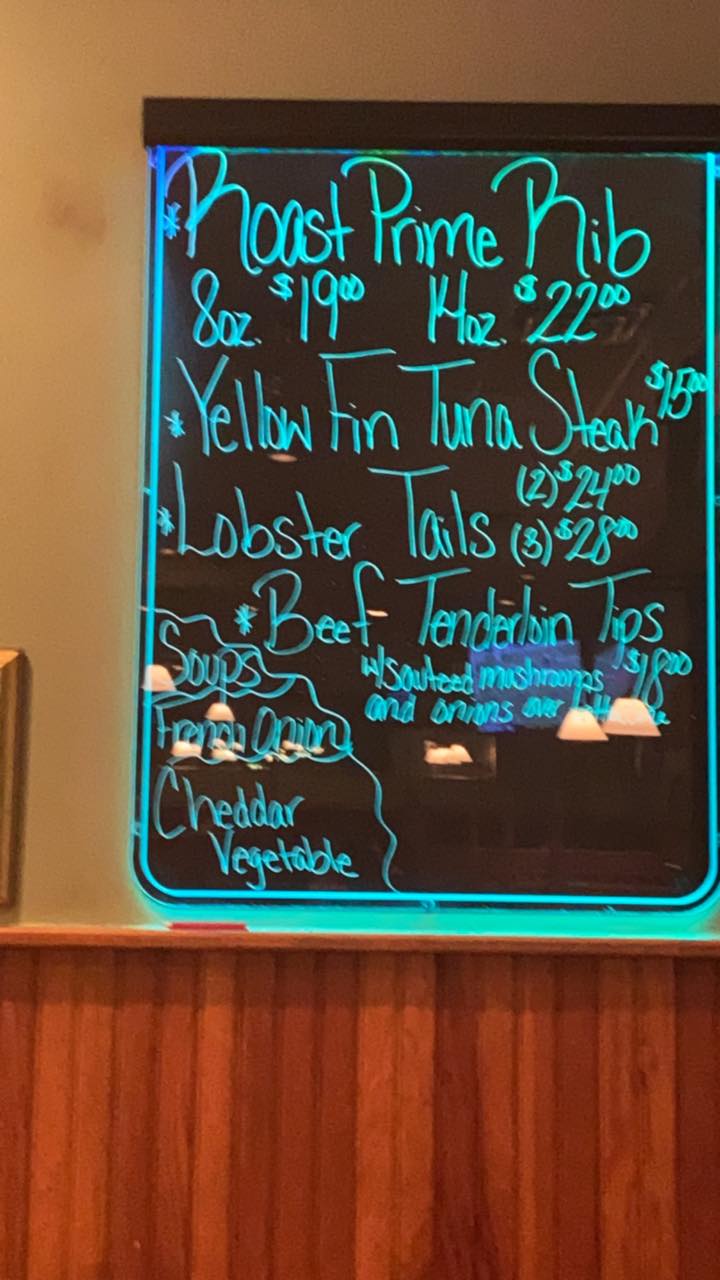 *Roast Prime Rib
8oz. $19⁰⁰ 14oz. $22⁰⁰
*Yellow Fin Tuna Steak $15⁰⁰
*Lobster Tails (2) $24⁰⁰
(3) $28⁰⁰
*Beef Tenderloin Tips
$18⁰⁰
w/sauteed mushrooms
and onions over
Soups
French Onion
Cheddar
Vegetable